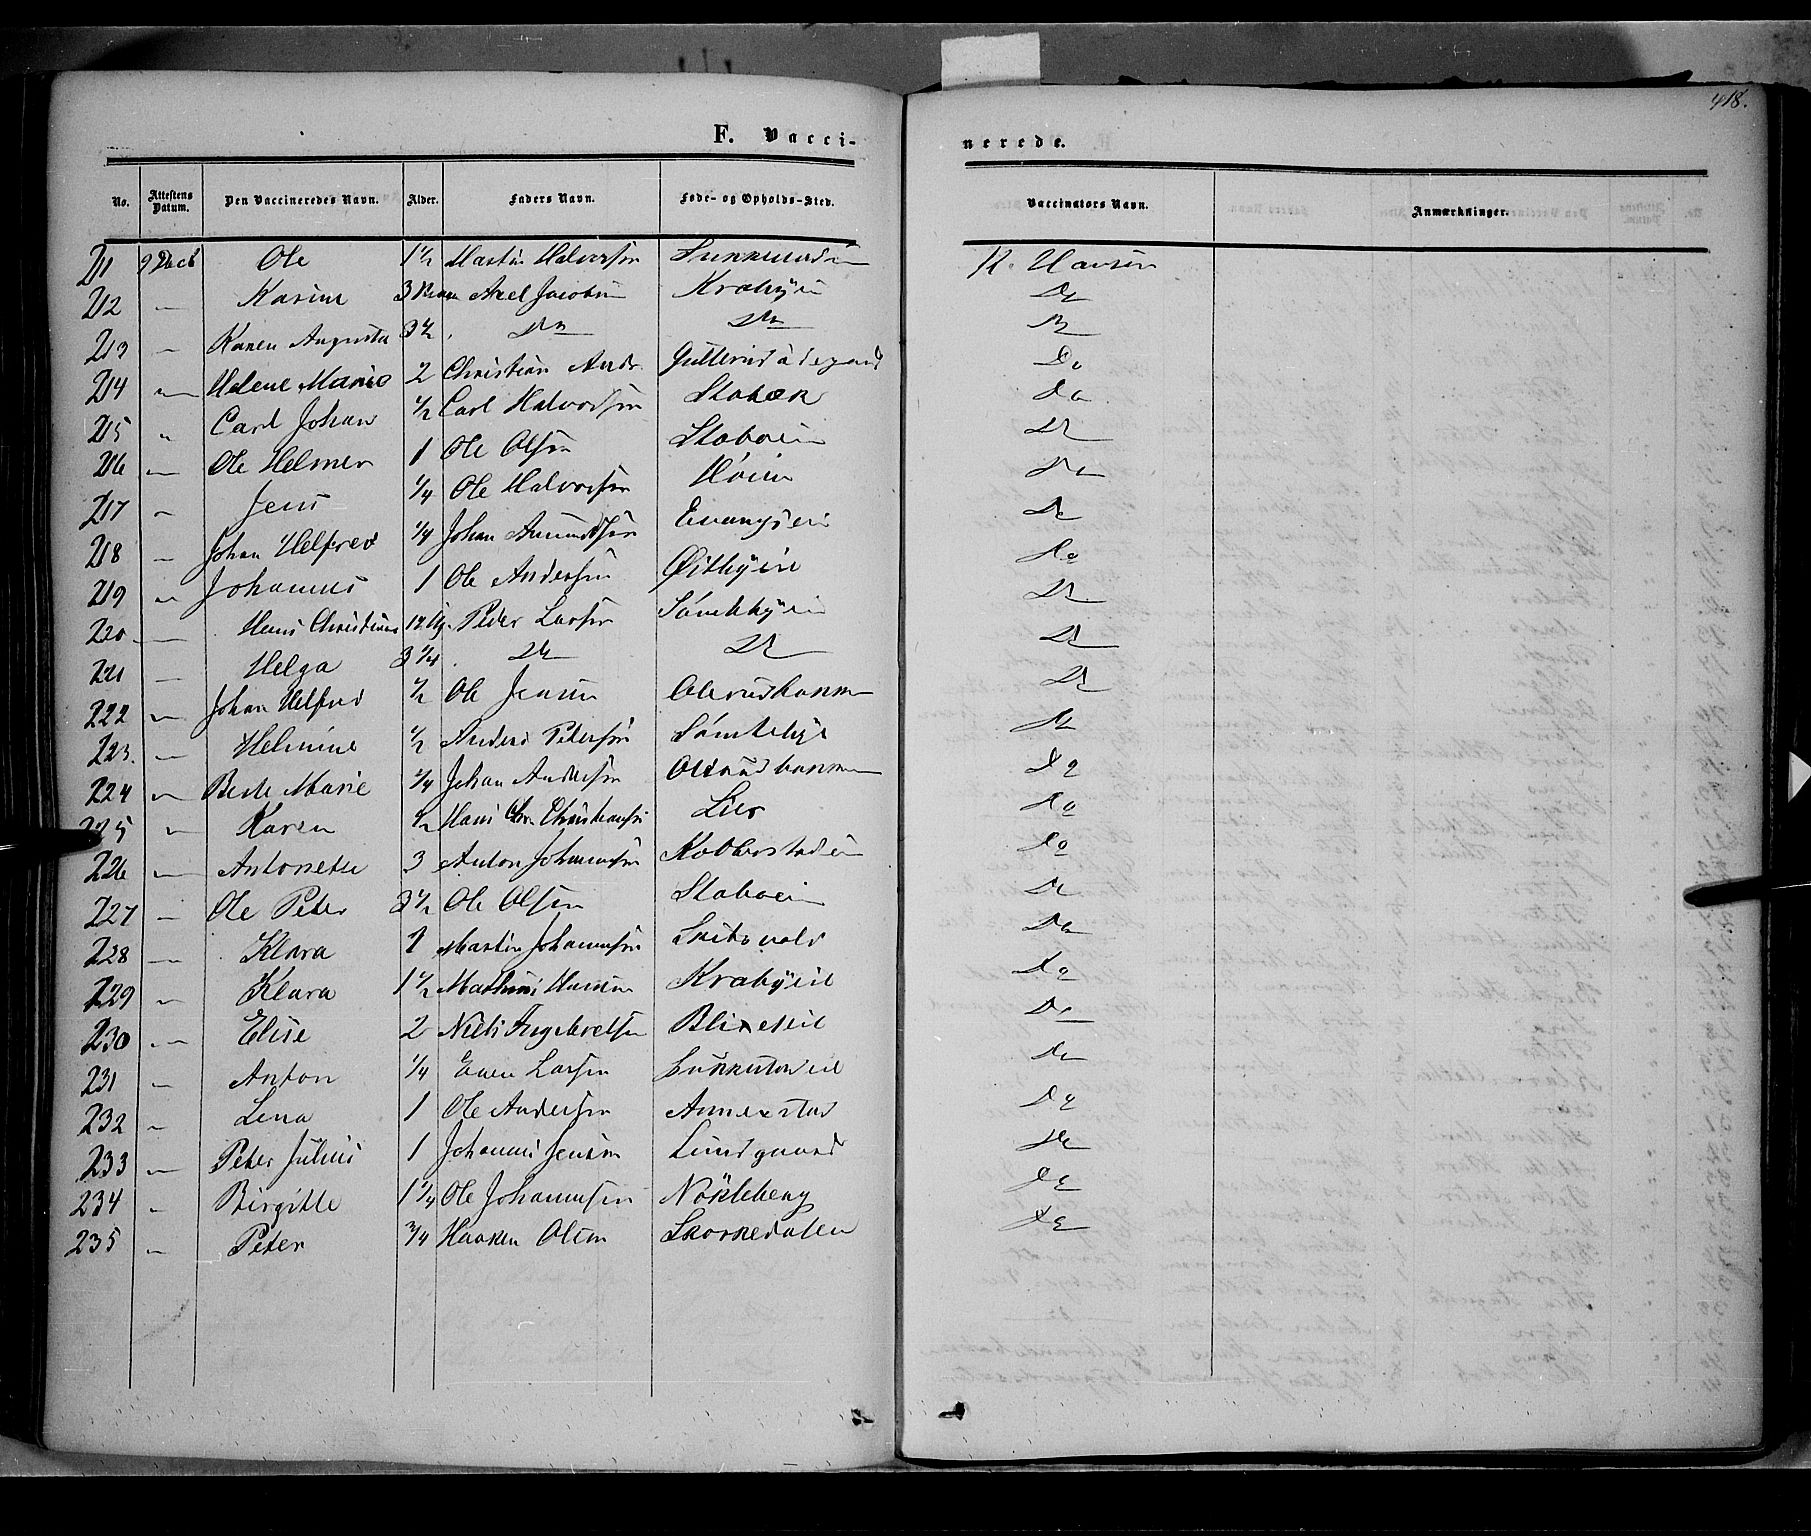 418.
F. Vacci-
nerede.
No. Attestens Datum. Den Vaccineredes Navn. Alder. Faders Navn. Føde- og Opholds-Sted. Vaccinators Navn. Anmærkninger.
211 9 Decb Ole 1½ Martin Halvorsen N. Hansen
212 — Karine 3 Axel Jacobsen Krabyeie Do
213 — Karen Augusta 3½ Do Do Do
214 — Helene Marie 2 Christian Andr. Gullerudødegaard Do
215 " Carl Johan ½ Carl Halvorsen Stabæk Do
216 — Ole Helmer 1 Ole Olsen Staboeie Do
217 " Jens ¼ Ole Halvorsen Høiee Do
218 — Johan Helfred ¼ Johan Amundsen Evangseie Do
219 " Johannes 1 Ole Andersen Østbyeie Do
220 — Hans Christian Peder Larsen Do
221 — Helga 3¼ Do Do Do
222 — Johan Helfred ½ Ole Jensen Do
223. — Helmine ½ Anders Petersen Do
224 — Berte Marie ¼ Johan Andersen Do
225 " Karen ½ Hans Chr. Christiansen Lier Do
226 — Antonette 3 Anton Johannesen Kobberstadeie Do
227 — Ole Peter 3½ Ole Olsen Staboeie Do
228 — Klara 1 Martin Johannesen Do
229 " Klara 1½ Mathias Hansen Krabyeie Do
230 — Elise 2 Niels Ingebretsen Blixeie Do
231 " Anton ¼ Even Larsen Do
232 " Lena 1 Ole Andersen Annexstad Do
233 — Peter Julius 1 Johannes Jensen Lundgaard Do
234 " Birgitte 1¼ Ole Johannesen Nøkleberg Do
235 " Peter ¾ Haaken Olsen Skorkedalen Do